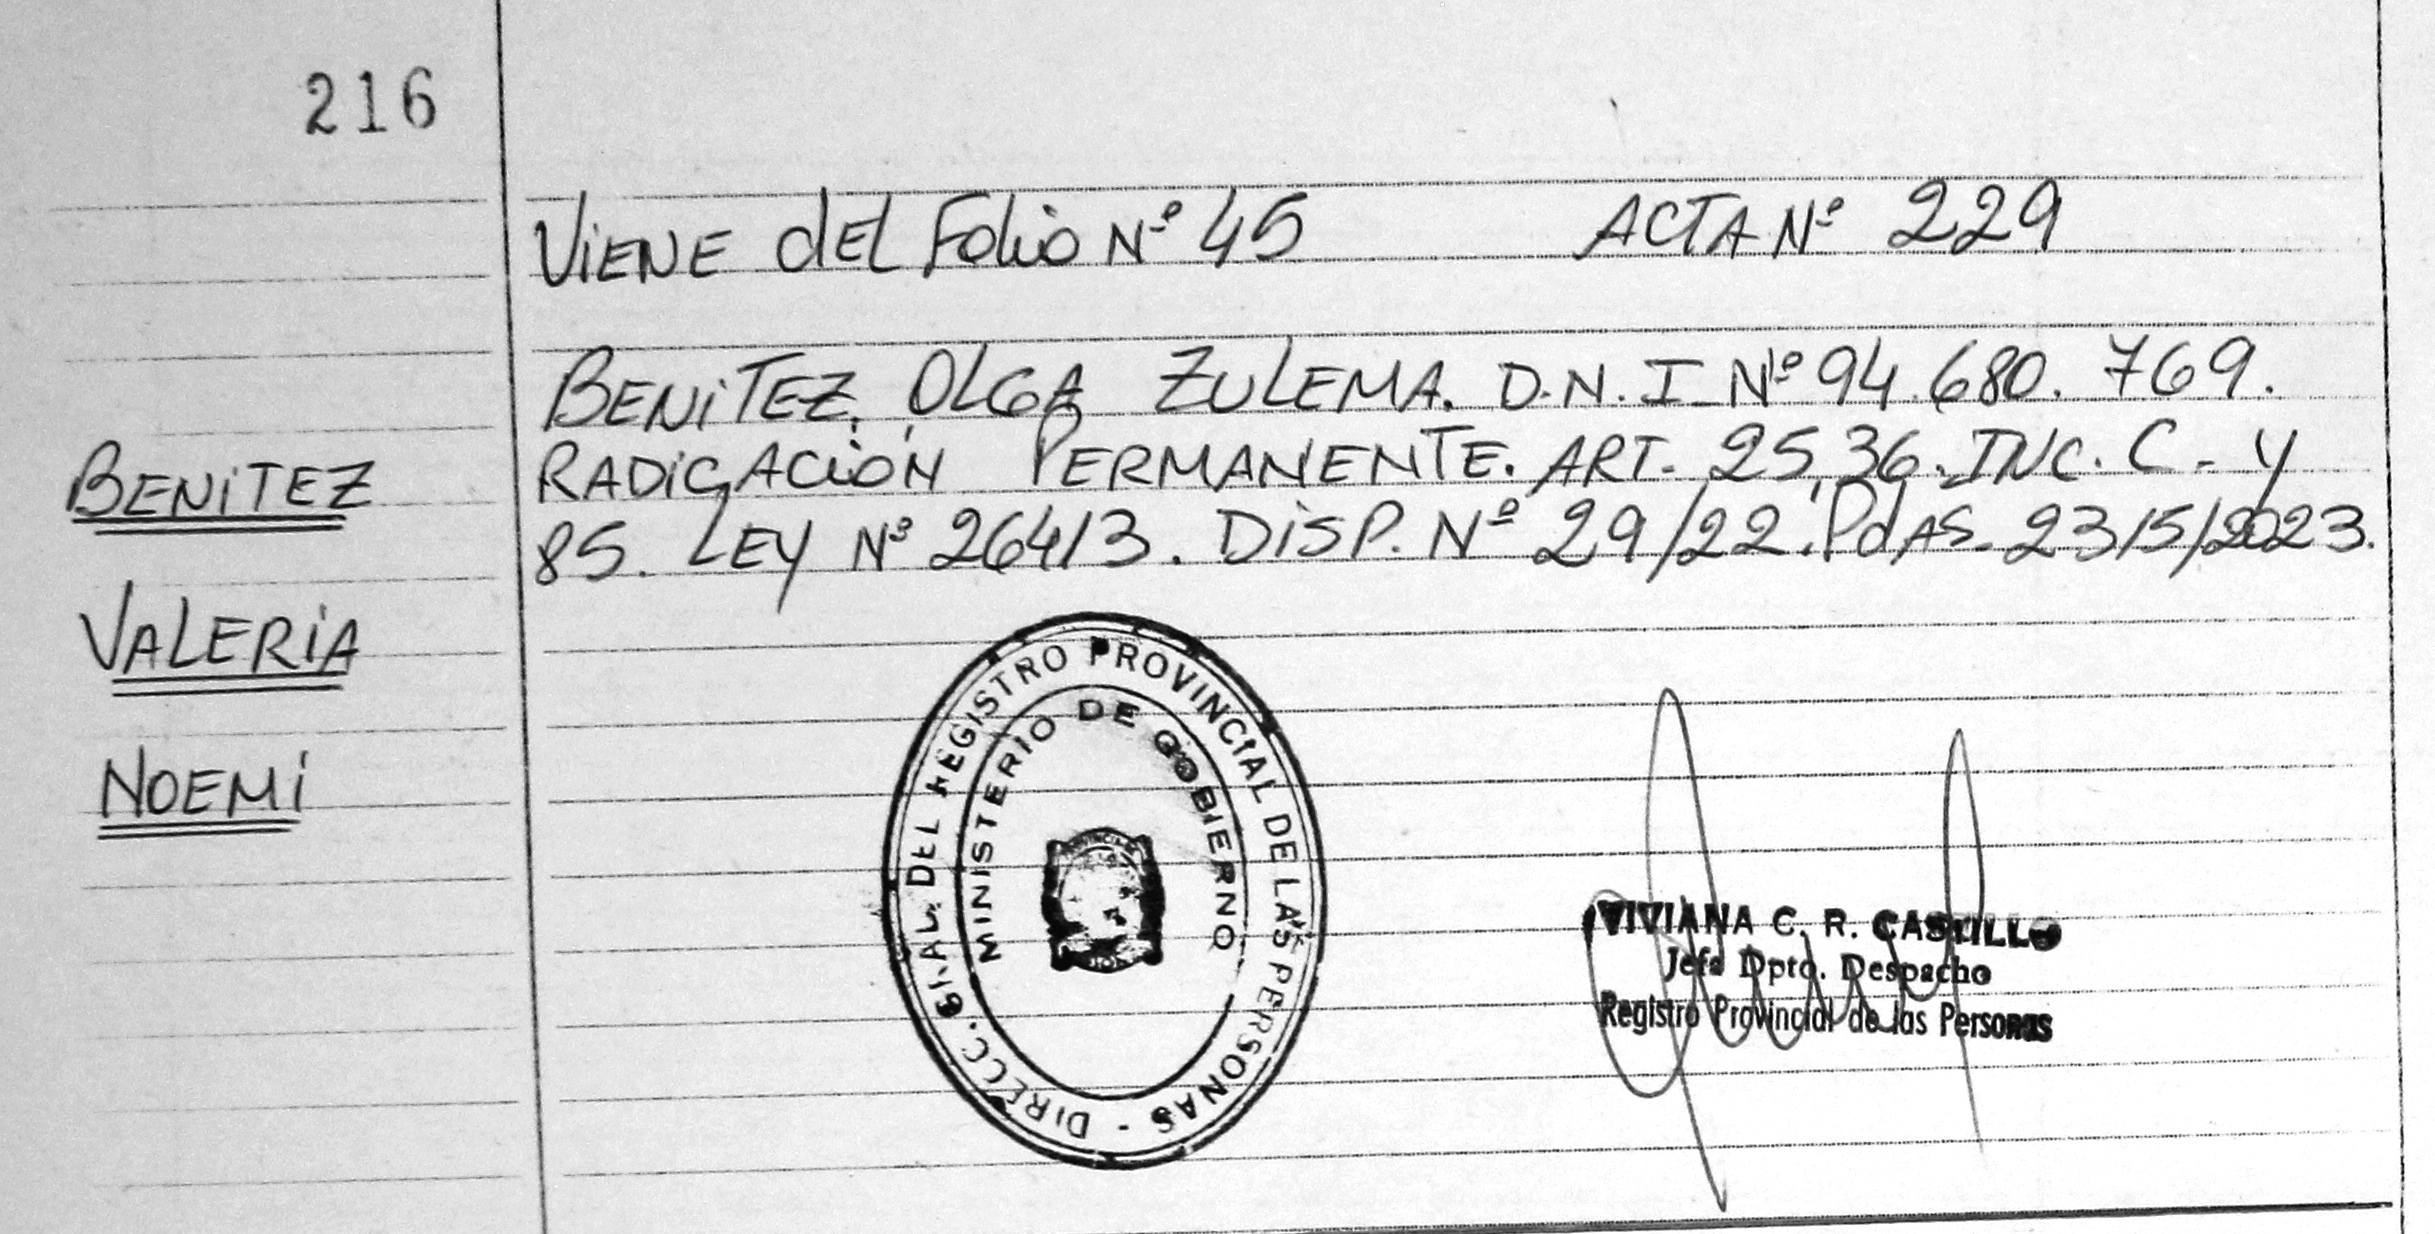 216
VIENE dEL FOLIO Nº 45 ACTA Nº 229
BENITEZ, OLGA ZULEMA. D.N.I Nº 94.680.769.
RADICACIÓN PERMANENTE. ART. 25,36. INC. C - Y
85. LEY Nº 26413. DISP. Nº 29/22. PdAS. 23/5/2023.
BENITEZ
VALERIA
NOEMI
DIRECC. GRAL. DEL REGISTRO PROVINCIAL DE LAS PERSONAS -
MINISTERIO DE GOBIERNO
VIVIANA C. R. CASTILLO
Jefa Dpto. Despacho
Registro Provincial de las Personas